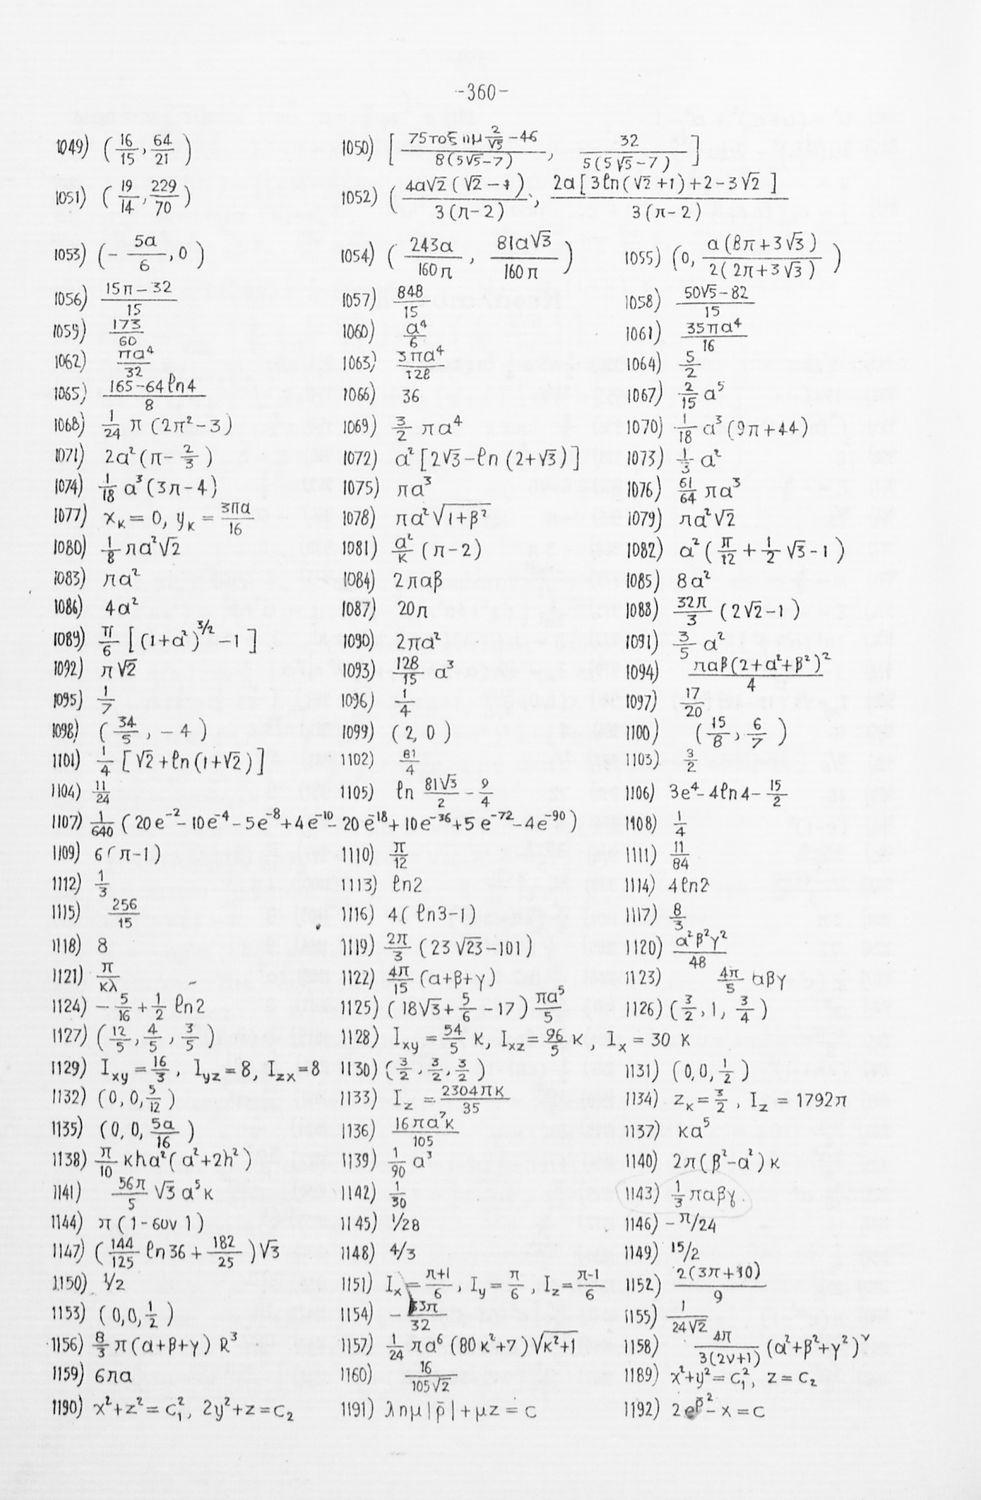 -360-
1049) (16/15, 64/21) 1050) [ (75τοξ ημ 2/√5 - 46)/(8(5√5-7)), 32/(5(5√5-7)) ]
1051) (19/14, 229/70) 1052) ( 4α√2(√2-1)/(3(π-2)), 2α[3ℓn(√2+1)+2-3√2]/(3(π-2))
1053) (- 5α/6, 0) 1054) ( 243α/160π, 81α√3/160π ) 1055) (0, α(8π+3√3)/(2(2π+3√3)) )
1056) (15π-32)/15 1057) 848/15 1058) (50√5-82)/15
1059) 173/60 1060) α⁴/6 1061) 35πα⁴/16
1062) πα⁴/32 1063) 3πα⁴/128 1064) 5/2
1065) (165-64ℓn4)/8 1066) 36 1067) 2/15 α⁵
1068) 1/24 π (2π²-3) 1069) 3/2 πα⁴ 1070) 1/18 α³(9π+44)
1071) 2α²(π- 2/3) 1072) α²[2√3-ℓn(2+√3)] 1073) 1/3 α²
1074) 1/18 α³(3π-4) 1075) πα³ 1076) 61/64 πα³
1077) xκ = 0, yκ = 3πα/16 1078) πα²√(1+β²) 1079) πα²√2
1080) 1/8 πα²√2 1081) α²/κ (π-2) 1082) α²( π/12 + 1/2 √3 - 1 )
1083) πα² 1084) 2παβ 1085) 8α²
1086) 4α² 1087) 20π 1088) 32π/3 (2√2-1)
1089) π/6 [(1+α²)^3/2 - 1] 1090) 2πα² 1091) 3/5 α²
1092) π√2 1093) 128/15 α³ 1094) παβ(2+α²+β²)²/4
1095) 1/7 1096) 1/4 1097) 17/20
1098) (34/5, -4) 1099) (2, 0) 1100) (15/8, 6/7)
1101) 1/4 [√2+ℓn(1+√2)] 1102) 81/4 1103) 3/2
1104) 11/24 1105) ℓn 81√3/2 - 9/4 1106) 3e⁴-4ℓn4- 15/2
1107) 1/640 (20e⁻²-10e⁻⁴-5e⁻⁸+4e⁻¹⁰-20e⁻¹⁸+10e⁻³⁶+5e⁻⁷²-4e⁻⁹⁰) 1108) 1/4
1109) 6(π-1) 1110) π/12 1111) 11/84
1112) 1/3 1113) ℓn2 1114) 4ℓn2
1115) 256/15 1116) 4(ℓn3-1) 1117) 8/3
1118) 8 1119) 2π/3 (23√23-101) 1120) α²β²γ²/48
1121) π/κλ 1122) 4π/15 (α+β+γ) 1123) 4π/5 αβγ
1124) - 5/16 + 1/2 ℓn2 1125) (18√3+ 5/6 -17) πα⁵/5 1126) (3/2, 1, 3/4)
1127) (12/5, 4/5, 3/5) 1128) Ixy = 54/5 κ, Ixz = 96/5 κ, Ix = 30 κ
1129) Ixy = 16/3, Iyz = 8, Izx = 8 1130) (3/2, 3/2, 3/2) 1131) (0,0, 1/2)
1132) (0,0, 5/12) 1133) Iz = 2304πκ/35 1134) zκ = 3/2, Iz = 1792π
1135) (0,0, 5α/16) 1136) 16πα⁷κ/105 1137) κα⁵
1138) π/10 κhα²(α²+2h²) 1139) 1/90 α³ 1140) 2π(β²-α²)κ
1141) 56π/5 √3 α⁵κ 1142) 1/30 1143) 1/3 παβγ.
1144) π(1-συν 1) 1145) 1/28 1146) -π/24
1147) (144/125 ℓn36 + 182/25)√3 1148) 4/3 1149) 15/2
1150) 1/2 1151) Ix = (π+1)/6, Iy = π/6, Iz = (π-1)/6 1152) 2(3π+10)/9
1153) (0,0, 1/2) 1154) - 33π/32 1155) 1/24√2
1156) 8/3 π(α+β+γ) R³ 1157) 1/24 πα⁶(80κ²+7)√(κ²+1) 1158) 4π/(3(2ν+1)) (α²+β²+γ²)^ν
1159) 6πα 1160) 16/105√2 1189) x²+y² = c₁², z = c₂
1190) x²+z² = c₁², 2y²+z = c₂ 1191) λημ|ρ̄|+μz = c 1192) 2eρ̄² - x = c